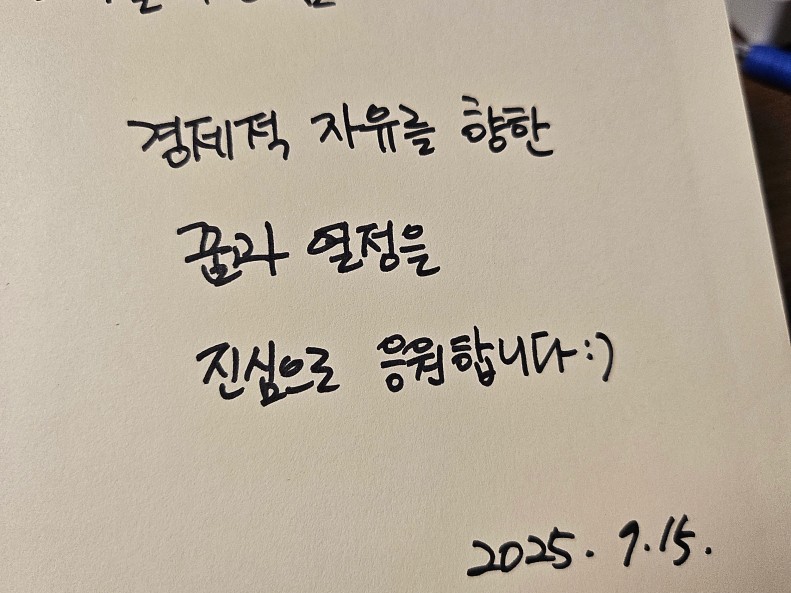 경제적 자유를 향한
꿈과 열정을
진심으로 응원합니다:)
2025. 7.15.